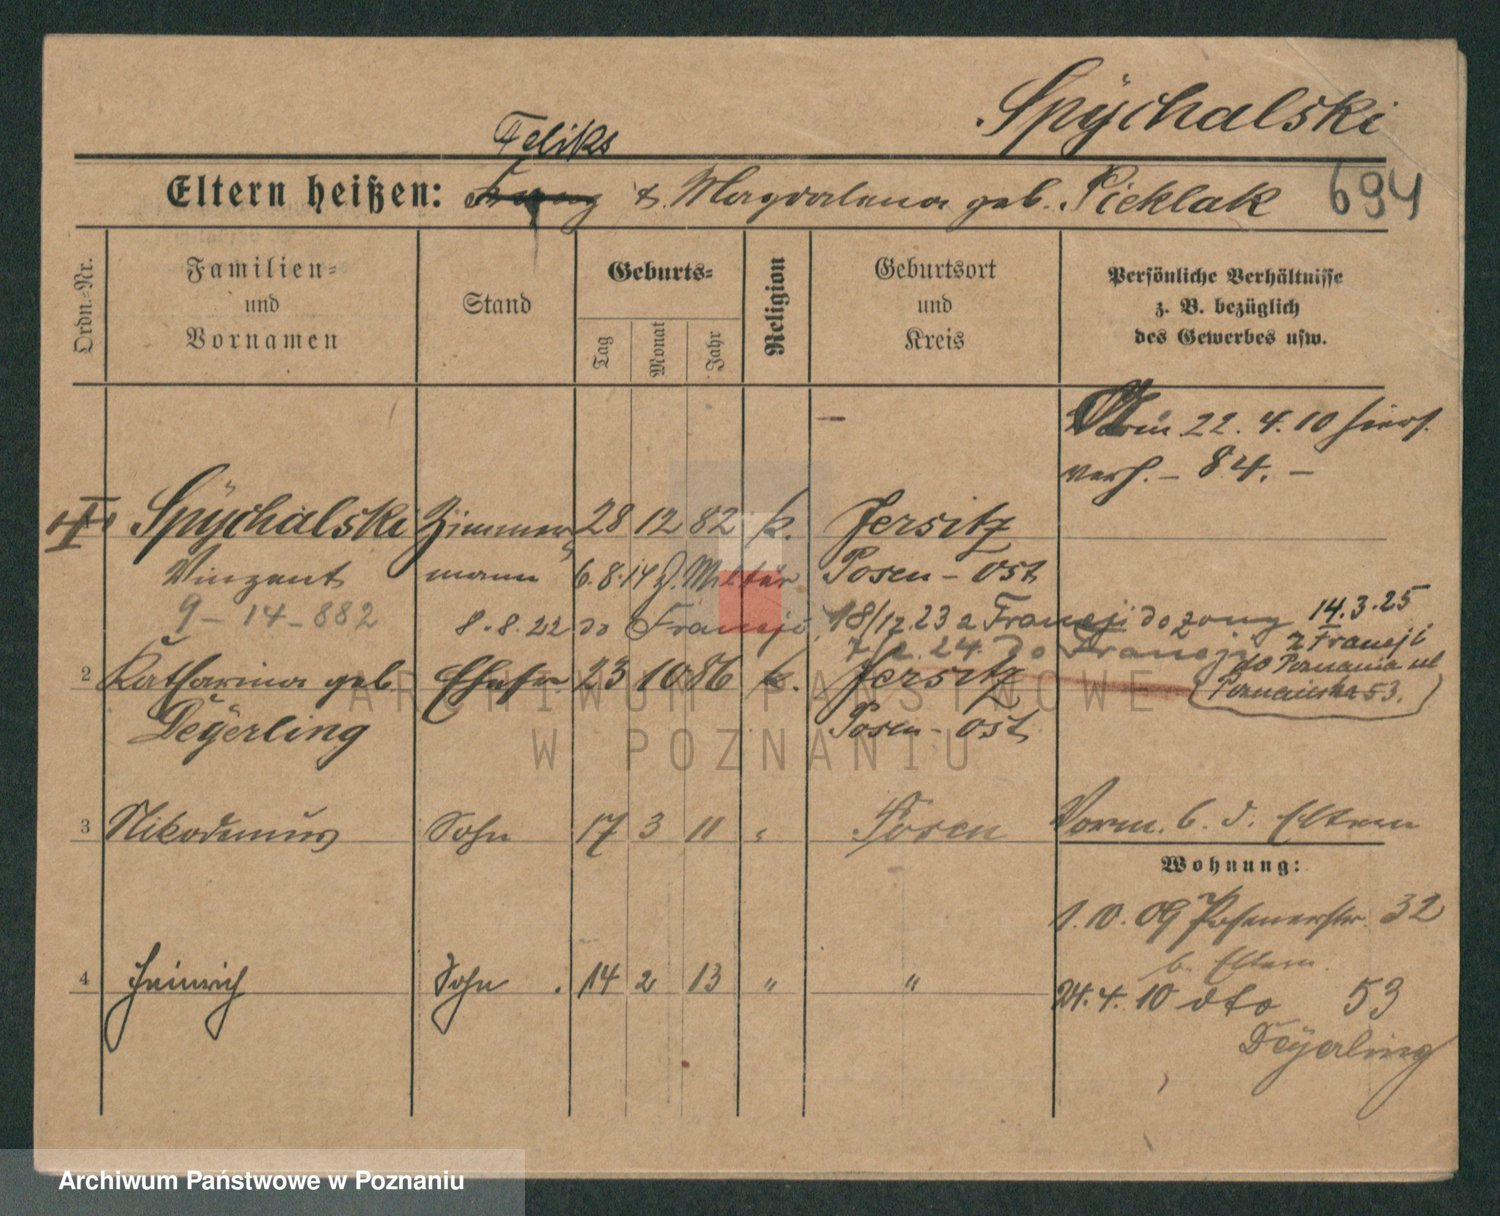 Spÿchalski
Feliks
Eltern heißen: & Magdalena geb. Pieklak 694
Ordn.-Nr.
Familien-
und
Vornamen
Stand
Geburts-
Tag
Monat
Jahr
Religion
Geburtsort
und
Kreis
Persönliche Verhältnisse
z. B. bezüglich
des Gewerbes usw.
22. 4. 10 hiers.
verh. – 84. –
Spÿchalski Zimmer 28 12 82 k. Jersitz
Vinzent mann 6.8.14 z. Militär Posen – Ost
9-14-882 8.8.22 do Francji 18/12.23 z Francji do żony 14.3.25
24. do Francji z Francji
do Poznania ul
Poznańska 53.
2 Katharina geb. Ehefr. 23 10 86 k. Jersitz
Deÿerling Posen – Ost
3 Nikodemus Sohn 17 3 11 " Posen Vorm. b. d. Eltern
Wohnung:
1. 10. 09 Posenerstr. 32
b. Eltern
4 Heinrich Sohn. 14 2 13 " "
24. 4. 10 dto 53
Deÿerling
ARCHIWUM PAŃSTWOWE
W POZNANIU
Archiwum Państwowe w Poznaniu